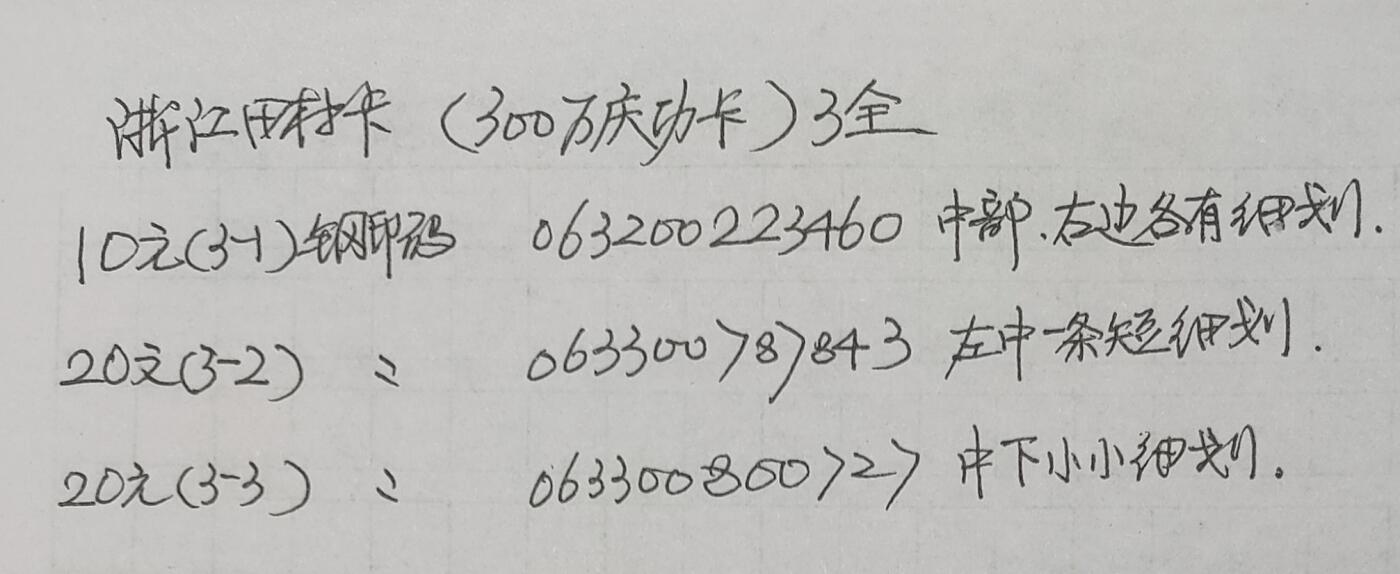 浙江田村卡（300万庆功卡）3全
10元(3-1)钢印码 063200223460 中部.右边各有细划.
20元(3-2) 〃 063300787843 左中一条短细划.
20元(3-3) 〃 063300800727 中下小小细划.